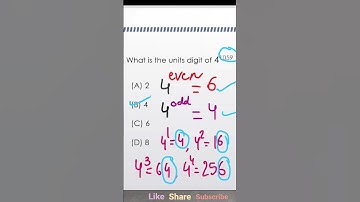 What is the units digit of 4¹⁰⁵⁹
(A) 2 4^even = 6
(B) 4 4^odd = 4
(C) 6
(D) 8 4¹=4, 4²=16
4³=64 4⁴=256
Like Share Subscribe